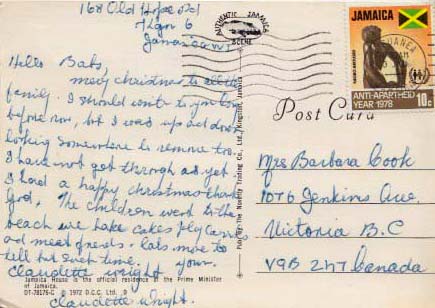 168 Old Hope rd
Kgn 6
Jamaica W.I
Hello Babs,
merry christmas to all the
family. I should write to you long
before now, but I was up and down
looking somewhere to remove too.
I have not get through as yet.
I had a happy christmas thank
God. The children went to the
beach we bake cakes fly
ad meat presents. lots more to
tell but next time. your.
Claudette wright
Claudette Wright.
Jamaica House is the official residence of the Prime Minister
of Jamaica.
DT-78176-C © 1972 D.C.C. Ltd.
Pub. by: The Novelty Trading Co. Ltd., Kingston, Jamaica
AUTHENTIC JAMAICA
SCENE
Post Card
JAMAICA
ANTI-APARTHEID
YEAR 1978
10c
Mrs Barbara Cook
1076 Jenkins Ave.
Victoria B.C
V9B 2N7 Canada